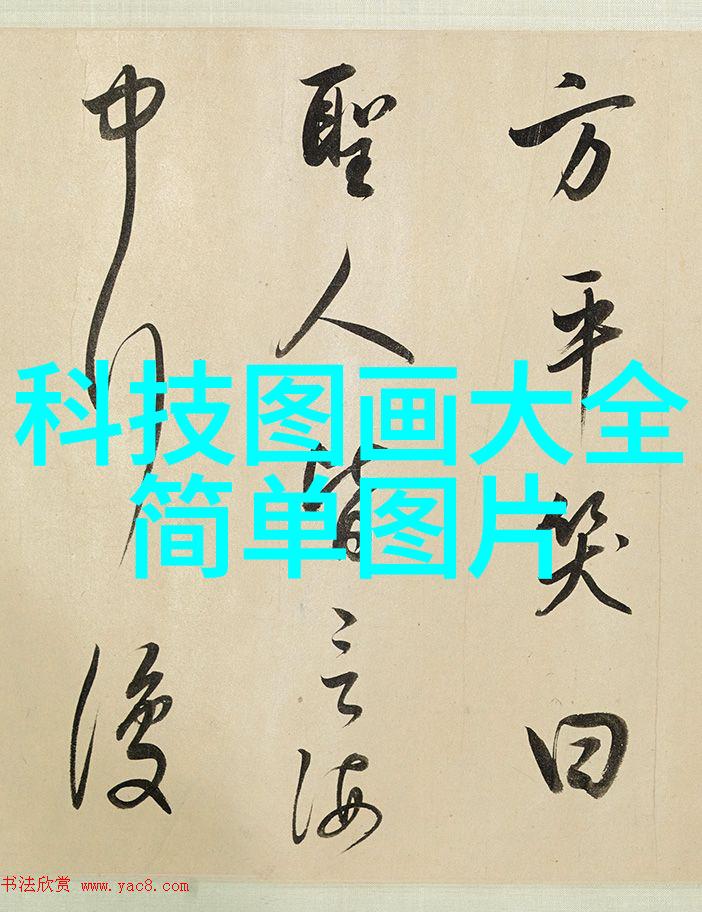 方平笑曰
聖人皆言海
中行復
科技图画大全
简单图片
书法欣赏 www.yac8.com